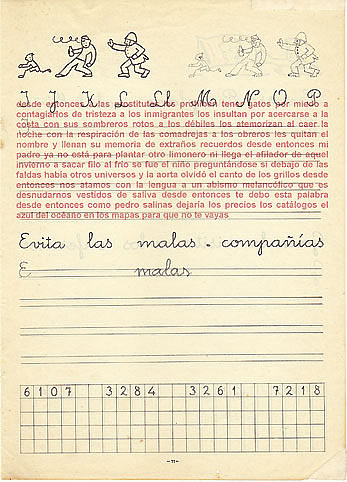 I J K L Ll M N O P
desde entonces a las prostitutas les prohíben tener gatos por miedo a
contagiarlos de tristeza a los inmigrantes los insultan por acercarse a la
costa con sus sombreros rotos a los débiles los atemorizan al caer la
noche con la respiración de las comadrejas a los obreros les quitan el
nombre y llenan su memoria de extraños recuerdos desde entonces mi
padre ya no está para plantar otro limonero ni llega el afilador de aquel
invierno a sacar filo al frío se fue el niño preguntándose si debajo de las
faldas había otros universos y la aorta olvidó el canto de los grillos desde
entonces nos atamos con la lengua a un abismo melancólico que es
desnudarnos vestidos de saliva desde entonces te debo esta palabra
desde entonces como pedro salinas dejaría los precios los catálogos el
azul del océano en los mapas para que no te vayas
Evita las malas compañías
E malas
6107 3284 3261 7218
-11-